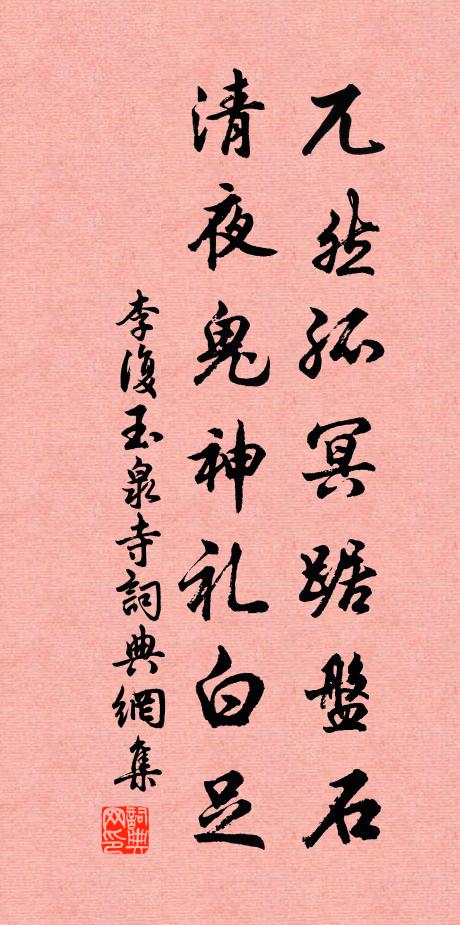 兀然孤冥踞盤石
清夜鬼神礼白足
李復玉泉寺詞典網集
詞典
网印